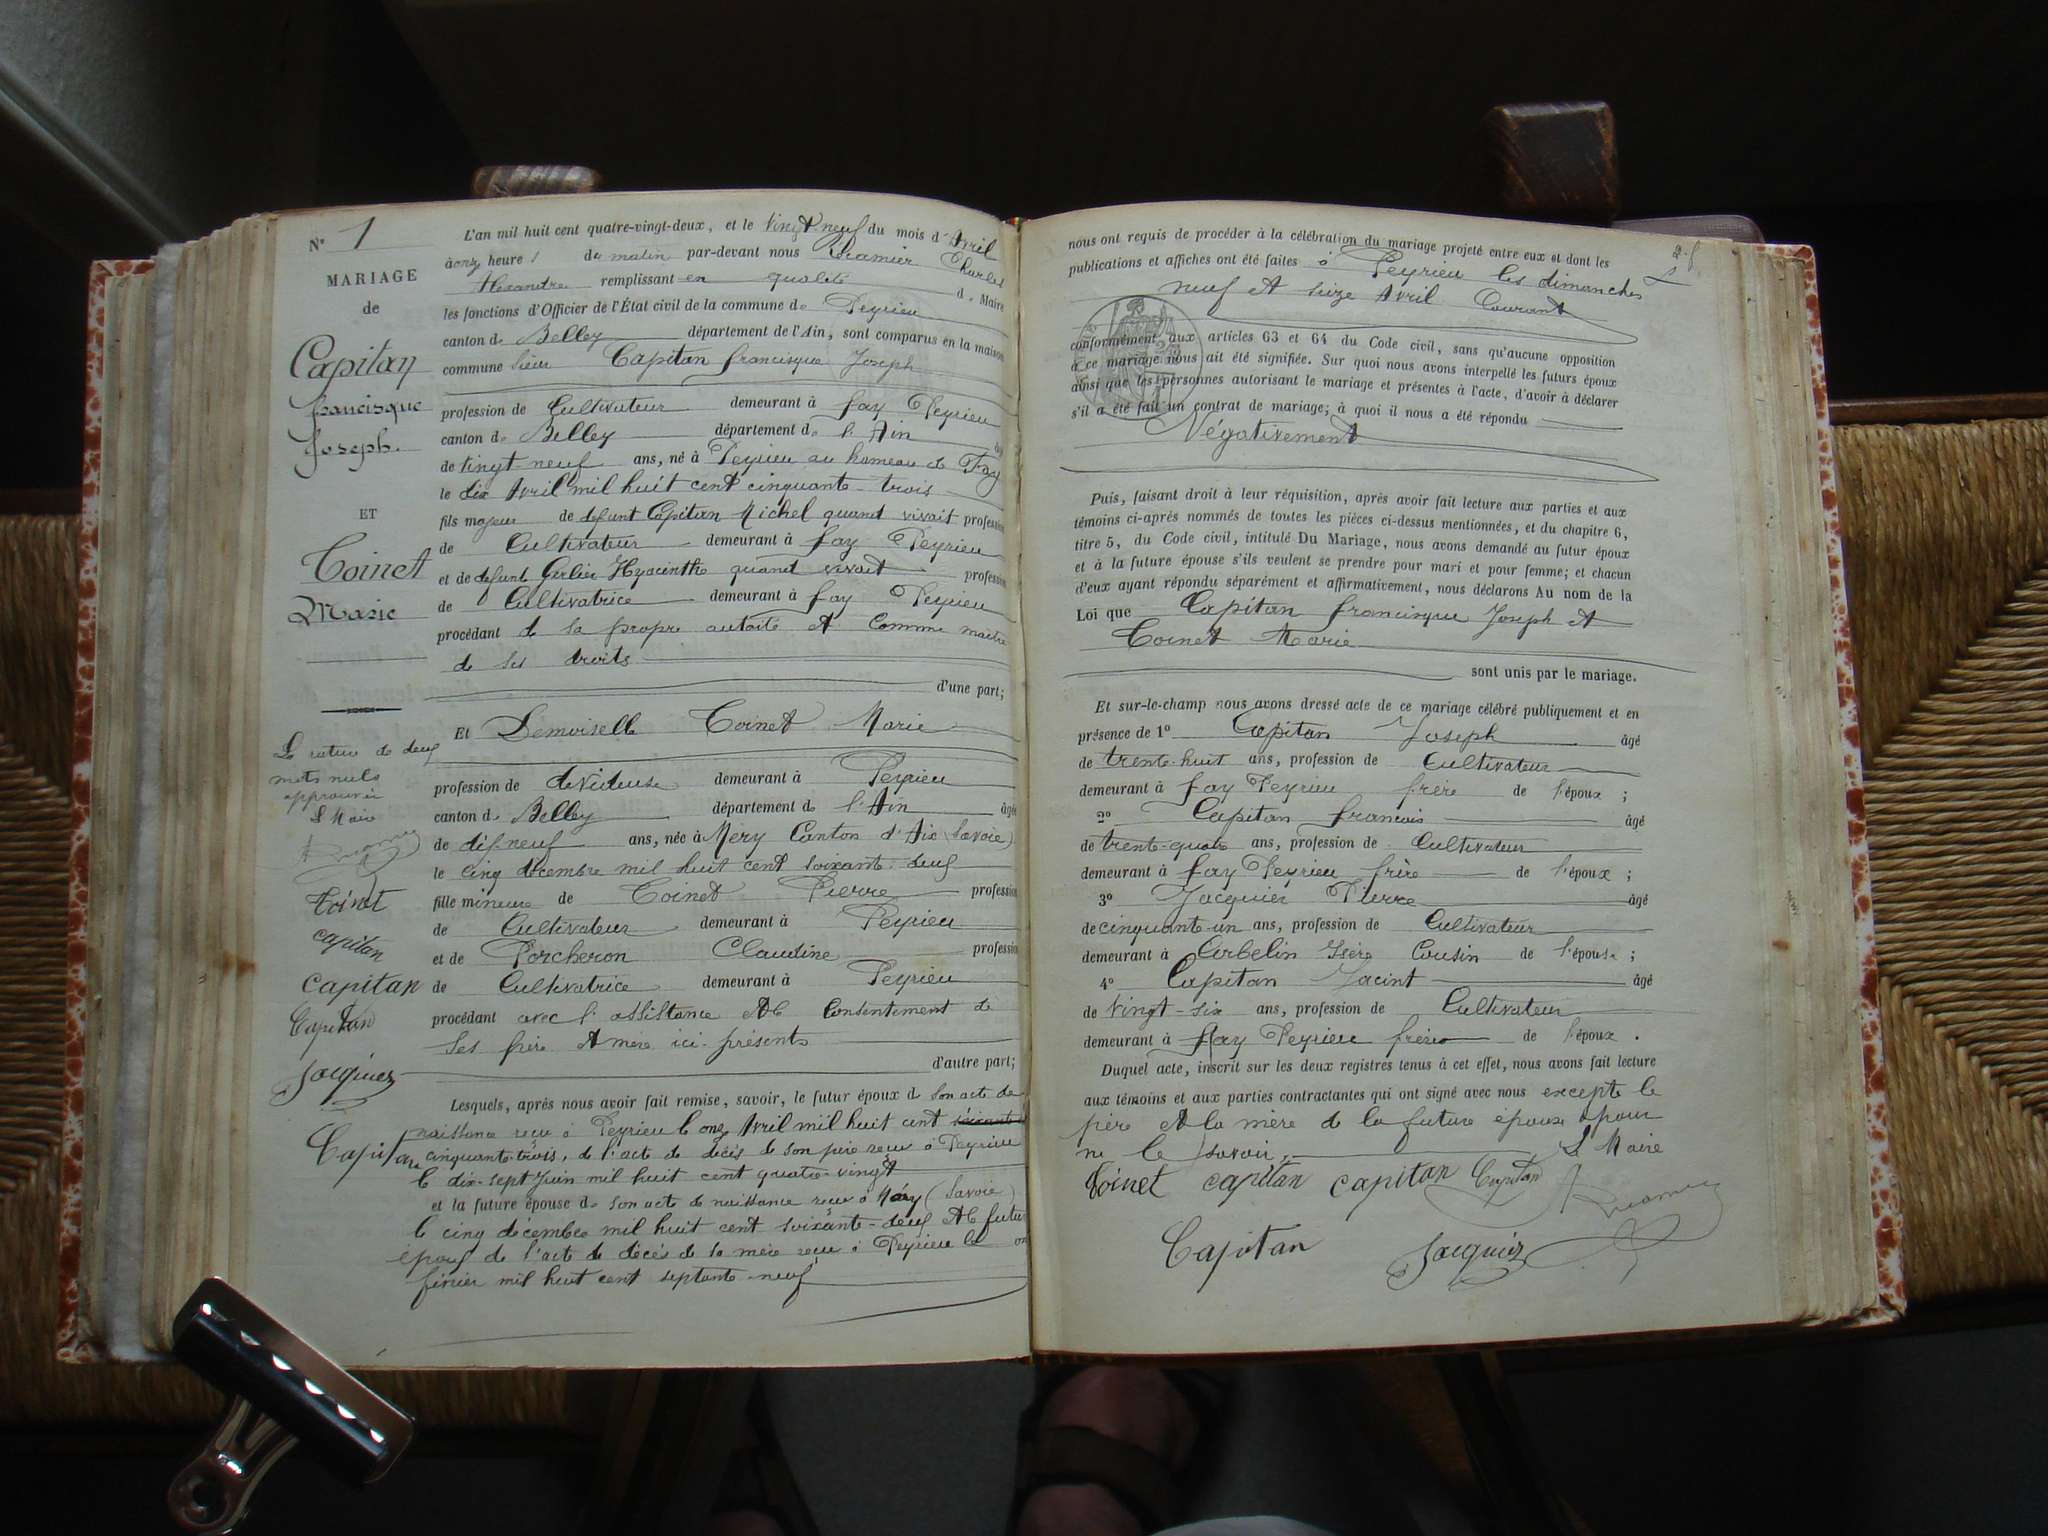 N° 1
MARIAGE
de
Capitan
francisque
Joseph.
ET
Toinet
Marie
La rature de deux
mots nuls
approuvée
Le Maire
toinet
capitan
capitan
Capitan
Jacquier
Capitan
L'an mil huit cent quatre-vingt-deux, et le vingt neuf du mois d'Avril
à onze heures du matin par-devant nous Charles
Alexandre remplissant en qualité de Maire
les fonctions d'Officier de l'État civil de la commune de Peyrieu
canton de Belley département de l'Ain, sont comparus en la maison
commune Sieur Capitan francisque Joseph
profession de Cultivateur demeurant à fay Peyrieu
canton de Belley département de l'Ain âgé
de vingt-neuf ans, né à Peyrieu au hameau de Fay
le dix Avril mil huit cent cinquante-trois
fils majeur de defunt Capitan Michel quand vivait profession
de Cultivateur demeurant à fay Peyrieu
et de defunte Gerlier Hyacinthe quand vivait profession
de Cultivatrice demeurant à fay Peyrieu
procédant de sa propre autorité et comme maitre
de ses droits
d'une part;
Et Demoiselle Toinet Marie
profession de devideuse demeurant à Peyrieu
canton de Belley département de l'Ain âgée
de dixneuf ans, née à Méry Canton d'Aix (Savoie)
le cinq décembre mil huit cent soixante-deux
fille mineure de Toinet Pierre profession
de Cultivateur demeurant à Peyrieu
et de Porcheron Claudine profession
de Cultivatrice demeurant à Peyrieu
procédant avec l'assistance et le Consentement de
Ses père et mère ici-présents
d'autre part;
Lesquels, après nous avoir fait remise, savoir, le futur époux de son acte de
naissance reçu à Peyrieu le onze Avril mil huit cent
cinquante-trois, de l'acte de décès de son père reçu à Peyrieu
le dix-sept Juin mil huit cent quatre-vingt
et la future épouse de son acte de naissance reçu à Méry (Savoie)
le cinq décembre mil huit cent soixante-deux et le futur
époux de l'acte de décès de sa mère reçu à Peyrieu le
février mil huit cent septante-neuf
nous ont requis de procéder à la célébration du mariage projeté entre eux et dont les
publications et affiches ont été faites à Peyrieu les dimanches
neuf et seize Avril Courant
conformément aux articles 63 et 64 du Code civil, sans qu'aucune opposition
à ce mariage nous ait été signifiée. Sur quoi nous avons interpellé les futurs époux
ainsi que les personnes autorisant le mariage et présentes à l'acte, d'avoir à déclarer
s'il a été fait un contrat de mariage; à quoi il nous a été répondu
Négativement
Puis, faisant droit à leur réquisition, après avoir fait lecture aux parties et aux
témoins ci-après nommés de toutes les pièces ci-dessus mentionnées, et du chapitre 6,
titre 5, du Code civil, intitulé Du Mariage, nous avons demandé au futur époux
et à la future épouse s'ils veulent se prendre pour mari et pour femme; et chacun
d'eux ayant répondu séparément et affirmativement, nous déclarons Au nom de la
Loi que Capitan francisque Joseph et
Toinet Marie
sont unis par le mariage.
Et sur-le-champ nous avons dressé acte de ce mariage célébré publiquement et en
présence de 1° Capitan Joseph âgé
de trente-huit ans, profession de Cultivateur
demeurant à fay Peyrieu frère de l'époux ;
2° Capitan francois âgé
de trente-quatre ans, profession de Cultivateur
demeurant à fay Peyrieu frère de l'époux ;
3° Jacquier Pierre âgé
de cinquante-un ans, profession de Cultivateur
demeurant à Corbelin Isère Cousin de l'épouse ;
4° Capitan Jacint âgé
de vingt-six ans, profession de Cultivateur
demeurant à fay Peyrieu frère de l'époux .
Duquel acte, inscrit sur les deux registres tenus à cet effet, nous avons fait lecture
aux témoins et aux parties contractantes qui ont signé avec nous excepté le
père et la mère de la future épouse pour
ne le savoir. Le Maire
toinet capitan capitan Capitan
Capitan Jacquier